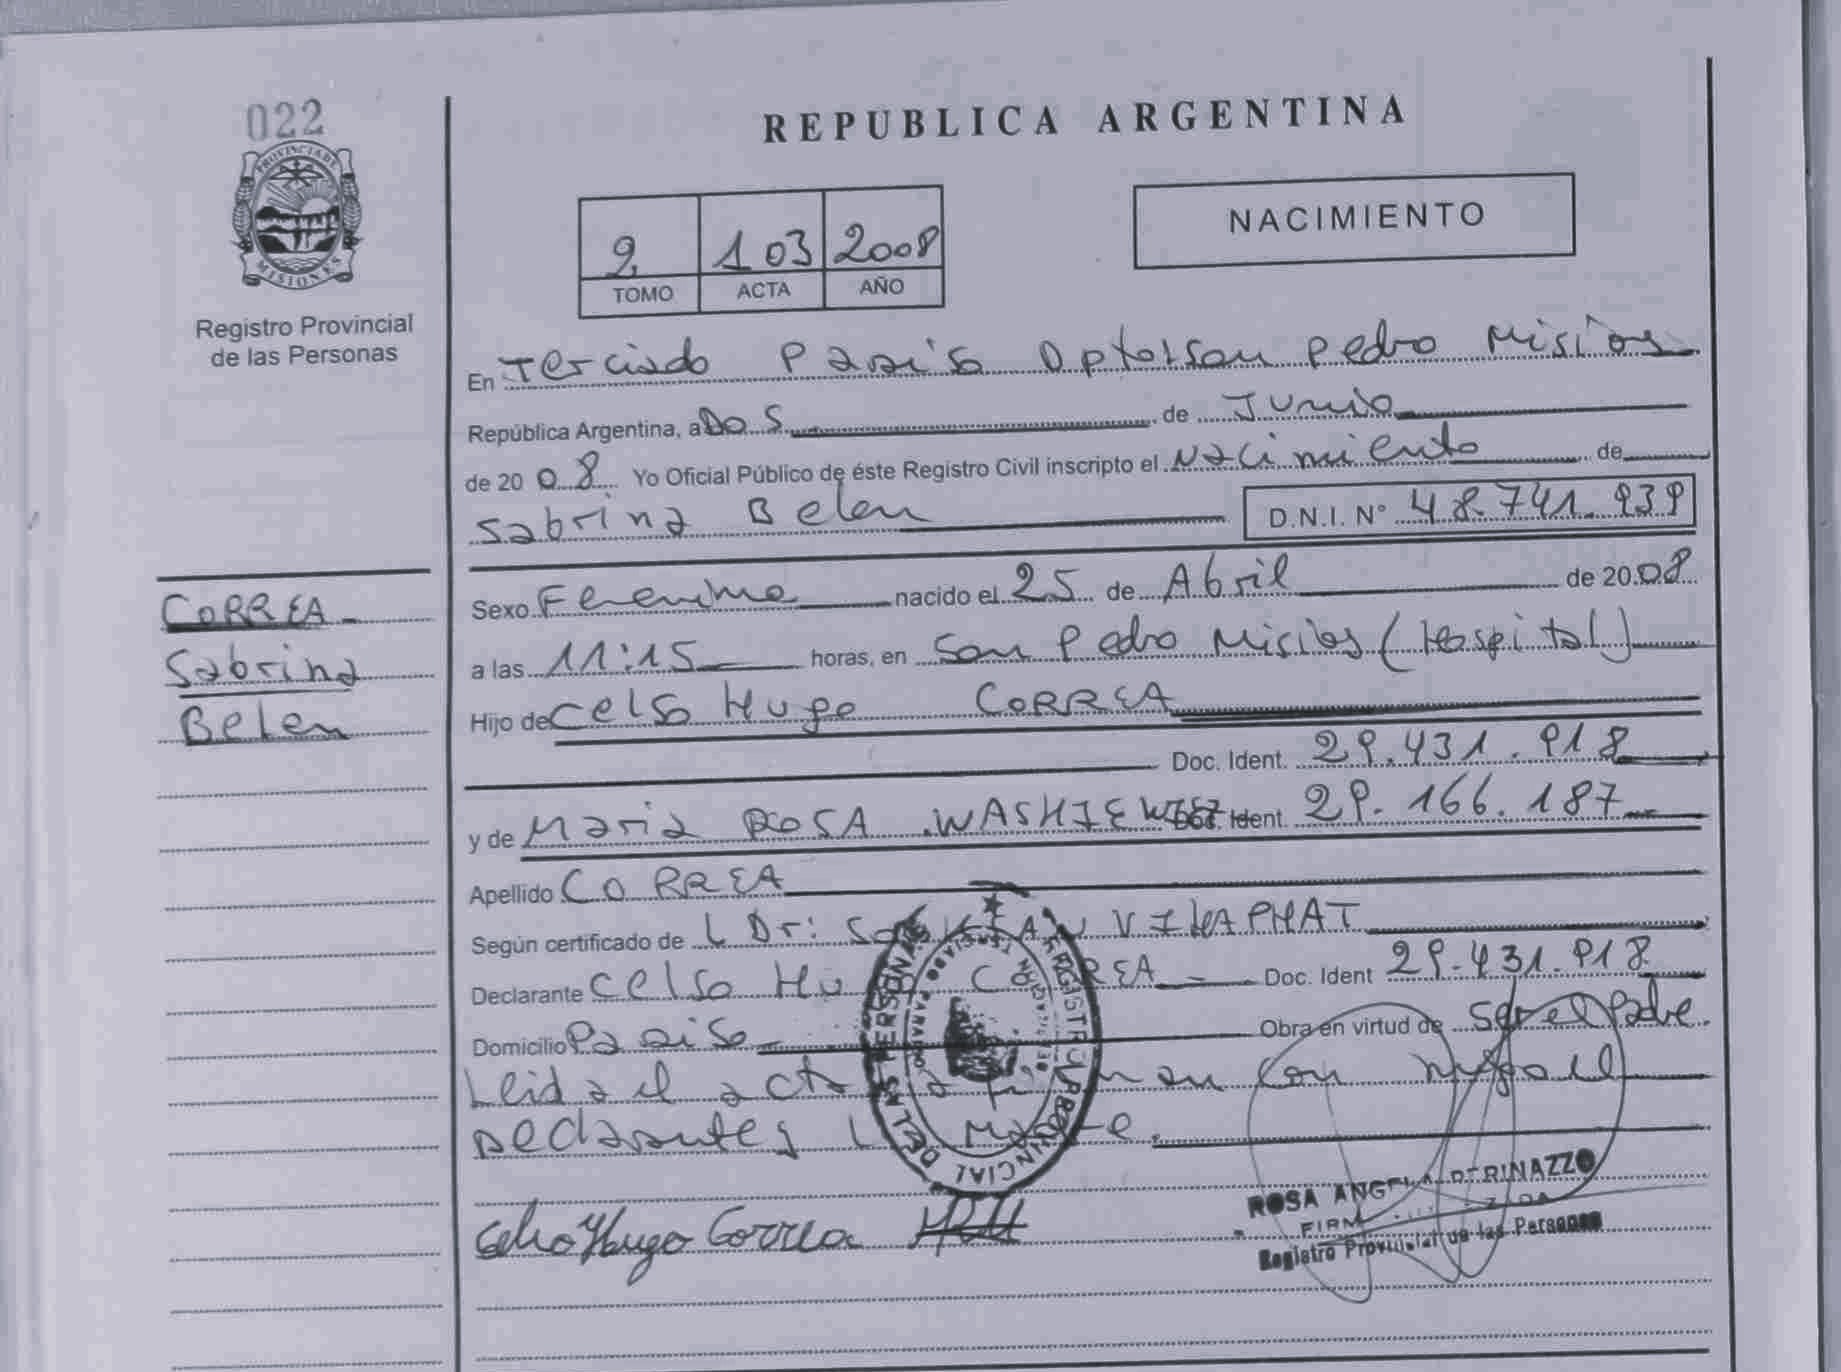 022
PROVINCIA DE
MISIONES
Registro Provincial
de las Personas
REPUBLICA ARGENTINA
2 103 2008
TOMO ACTA AÑO
NACIMIENTO
En Terciado Paraiso Dpto: San Pedro Misiones
República Argentina, a Dos de Junio
de 2008 Yo Oficial Público de éste Registro Civil inscripto el Nacimiento de
Sabrina Belen D.N.I. N° 48.741.939
CORREA
Sabrina
Belen
Sexo Femenino nacido el 25 de Abril de 2008
a las 11:15 horas, en San Pedro Misiones (Hospital)
Hijo de Celso Hugo CORREA
Doc. Ident. 29.431.918
y de Maria ROSA Doc. Ident. 29.166.187
Apellido CORREA
Según certificado de L Dr:
Declarante Celso CORREA Doc. Ident 29.431.918
Domicilio Paraiso Obra en virtud de ser el Padre
Leida el acta firman con
Declarantes
REGISTRO PROVINCIAL DE LAS PERSONAS
Celso Hugo Correa
ROSA ANGELA PERINAZZO
Registro Provincial de las Personas